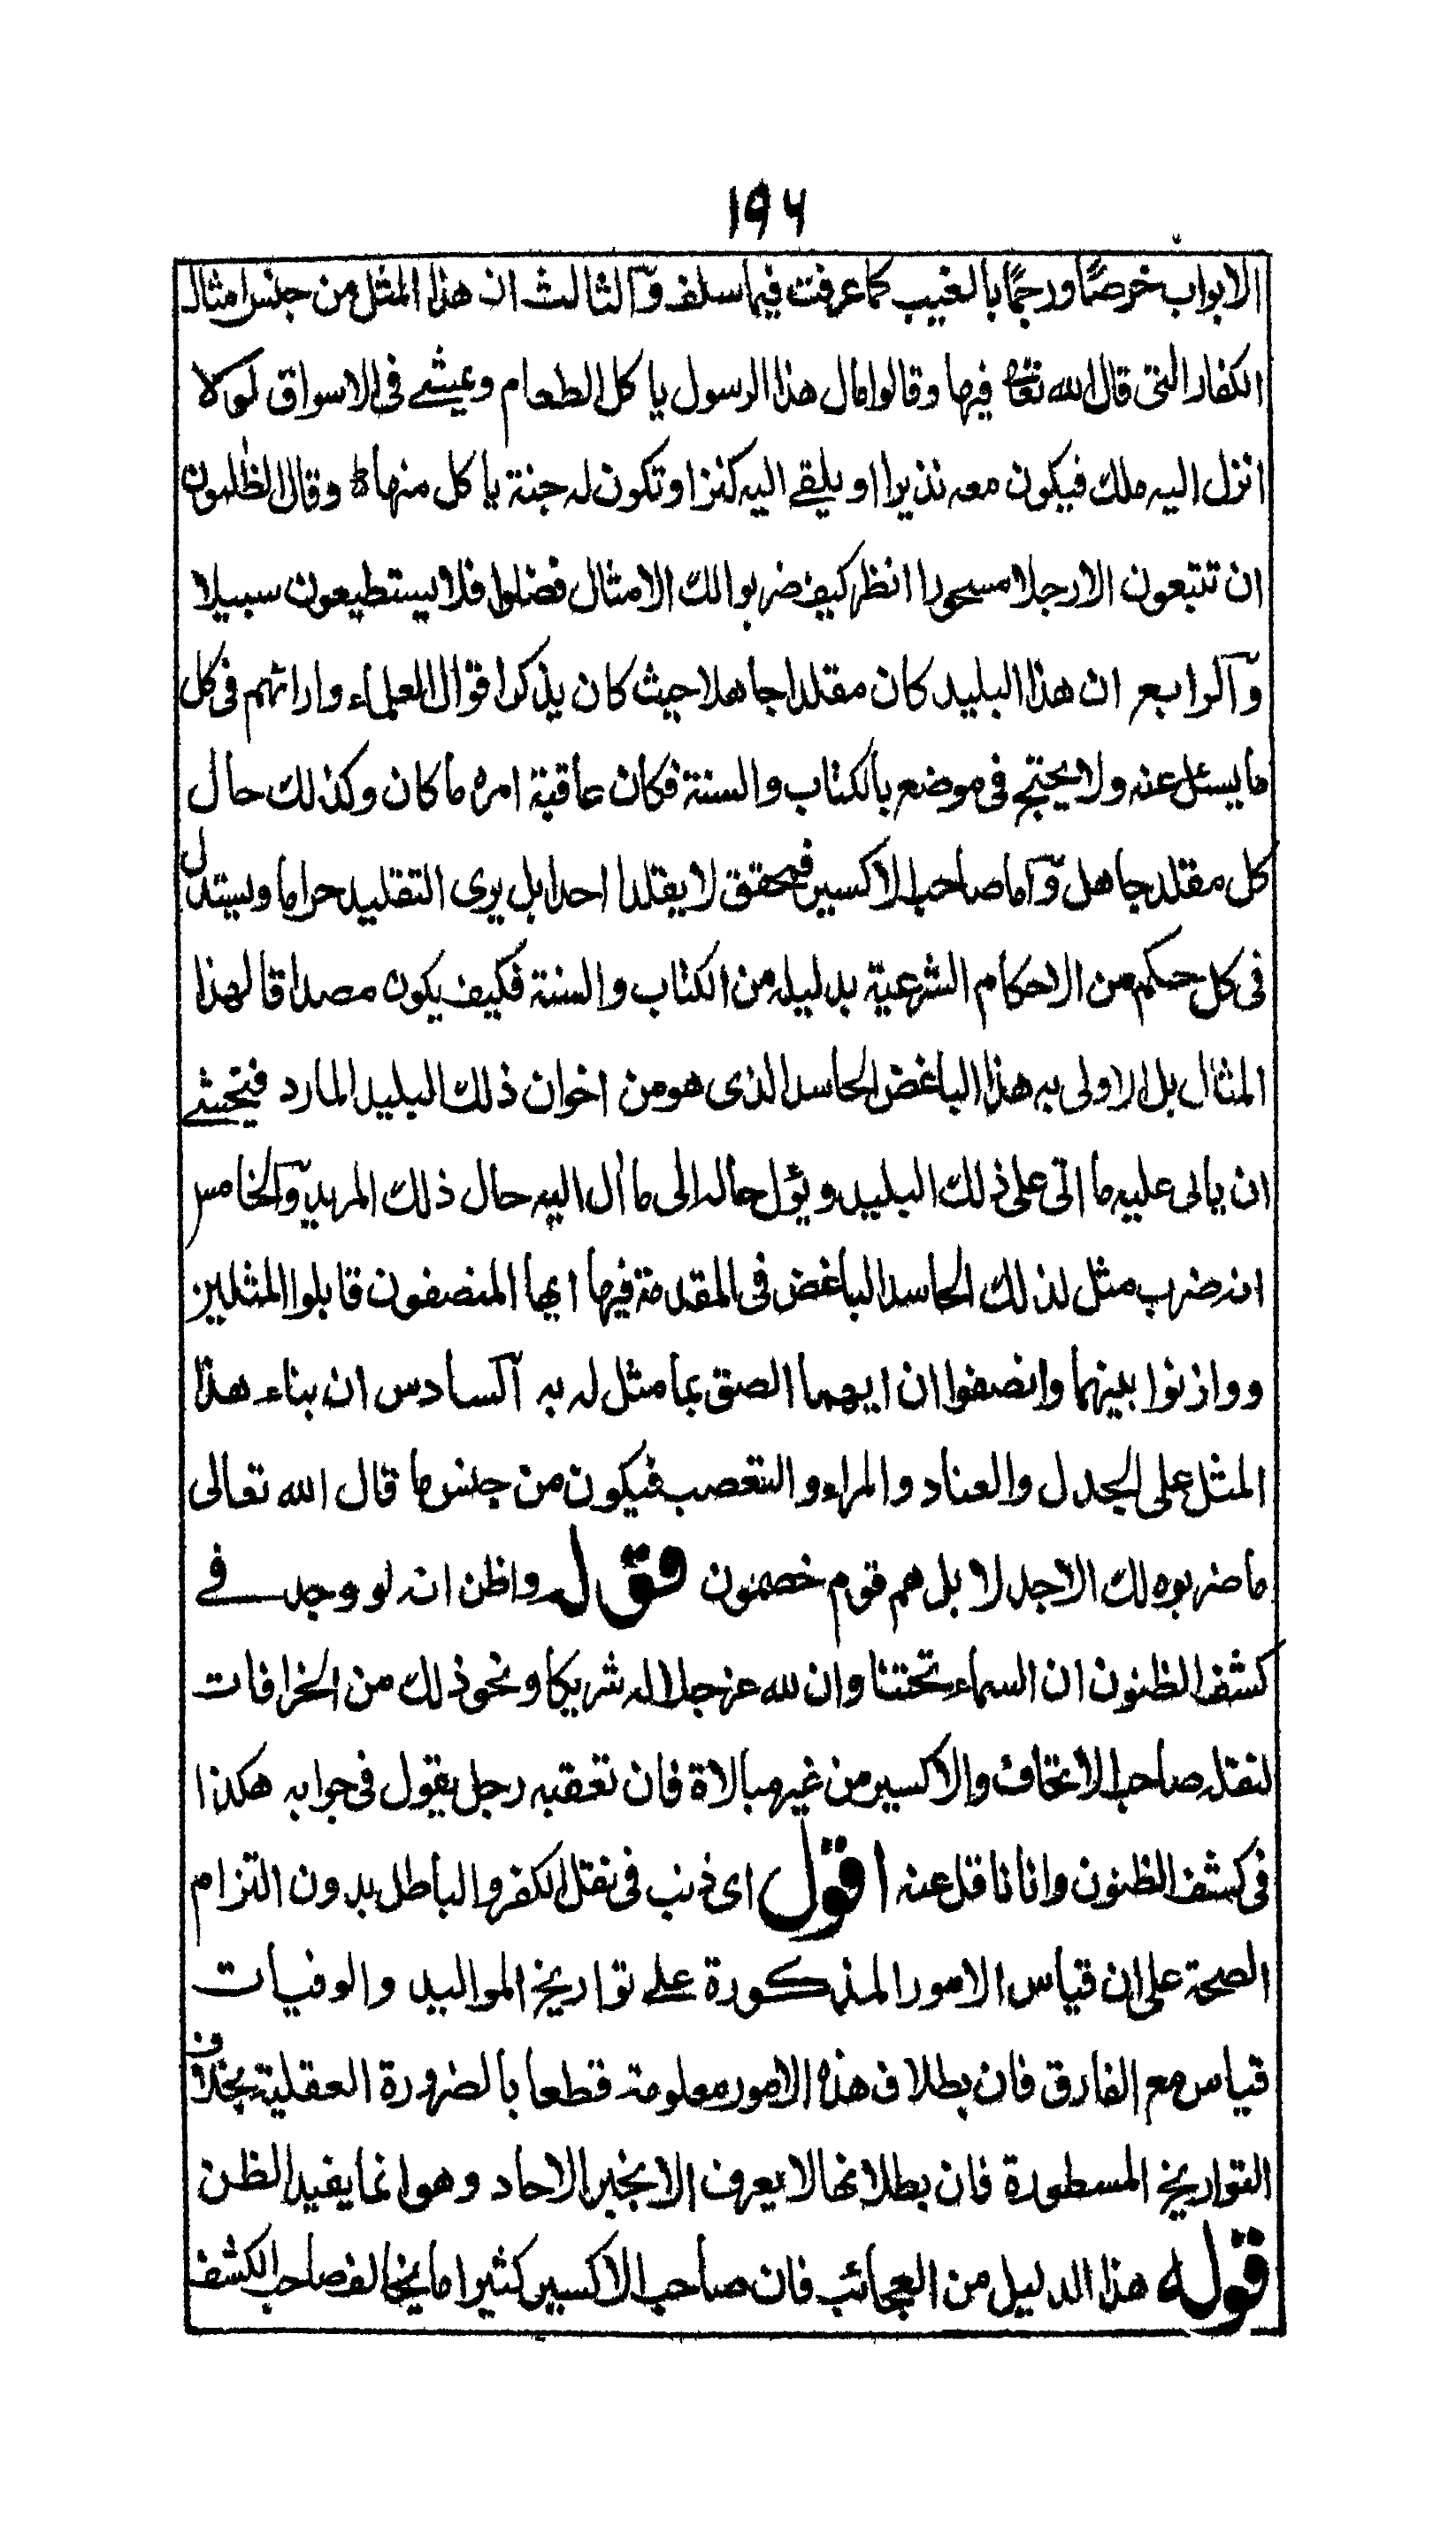 ١٩٦
الابواب خرصًا ورجمًا بالغيب كما عرفت فيما سلف وٓالثالث ان هذا المثل من جنس امثال
الكفار التى قال الله تعالى فيها وقالوا مال هذا الرسول ياكل الطعام ويمشے فى الاسواق لولا
انزل اليه ملك فيكون معه نذيرا او يلقے اليه كنز او تكون له جنة ياكل منها ط وقال الظلمون
ان تتبعون الا رجلا مسحورا انظر كيف ضربوا لك الامثال فضلوا فلا يستطيعون سبيلا
وٓالرابع ان هذا البليد كان مقلدا جاهلا حيث كان يذكر اقوال العلماء واراءهم فى كل
ما يسئل عنه ولا يحتج فى موضع بالكتاب والسنة فكان عاقبة امره ما كان وكذلك حال
كل مقلد جاهل وٓاما صاحب الاكسير فمحقق لا يقلد احدا بل يرى التقليد حراما ويستدل
فى كل حكم من الاحكام الشرعية بدليله من الكتاب والسنة فكيف يكون مصداقا لهذا
المثال بل الاولى به هذا الباغض الحاسد الذى هو من اخوان ذلك البليد المارد فيخشے
ان ياتى عليه ما اتى على ذلك البليد ويؤل حاله الى ما اٰل اليه حال ذلك المريد وٓالخامس
انه ضرب مثل لذلك الحاسد الباغض فى المقدمة فيها ايها المنصفون قابلوا المثلين
ووازنوا بينهما وانصفوا ان ايهما الصق بما مثل له به آلسادس ان بناء هذا
المثل على الجدل والعناد والمراء والتعصب فيكون من جنس ما قال الله تعالى
ما ضربوه لك الا جدلا بل هم قوم خصمون قوله واظن انه لو وجد فے
كشف الظنون ان السماء تحتنا وان لله عز جلاله شريكا ونحو ذلك من الخرافات
لنقله صاحب الاتحاف والاكسير من غير مبالاة فان تعقبه رجل يقول فى جوابه هكذا
فى كشف الظنون وانا ناقل عنه اقول اى ذنب فى نقل الكفر والباطل بدون التزام
الصحة على ان قياس الامور المذكورة علے تواريخ المواليد والوفيات
قياس مع الفارق فان بطلان هذه الامور معلومة قطعا بالضرورة العقلية بخلاف
التواريخ المسطورة فان بطلانها لا يعرف الا بخبر الاحاد وهو انما يفيد الظن
قوله هذا الدليل من العجائب فان صاحب الاكسير كثيرا ما يخالف صاحب الكشف